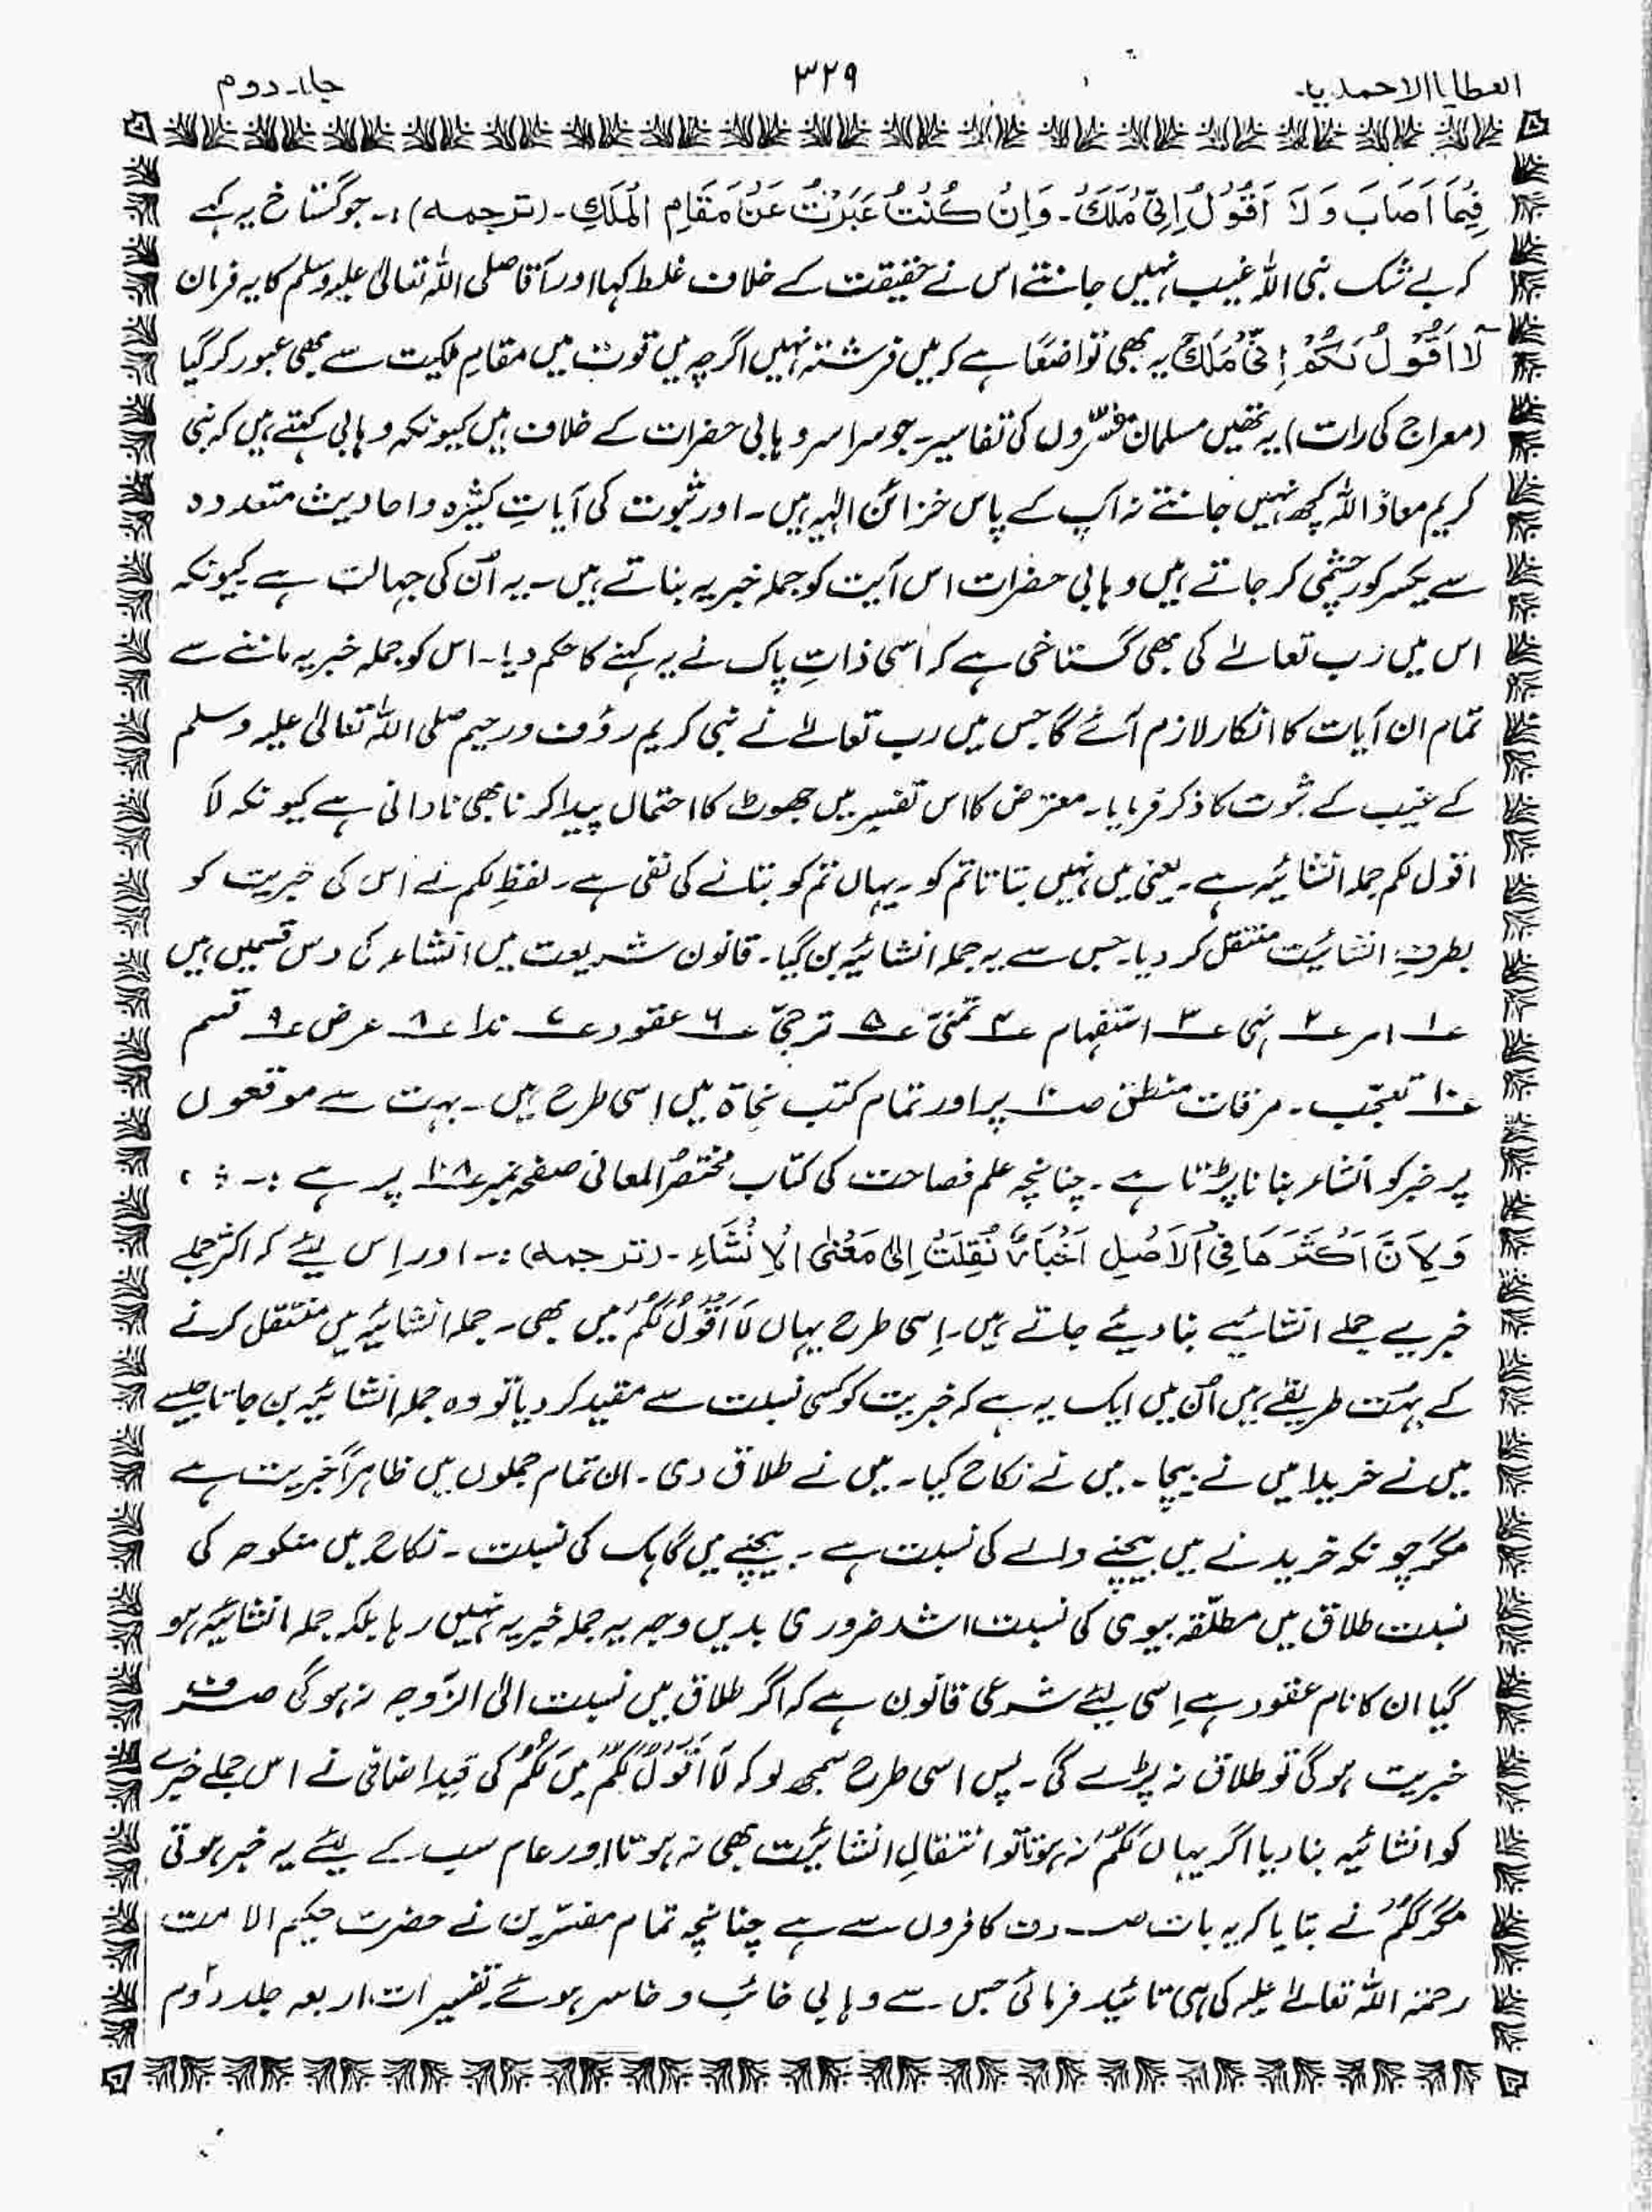 العطایا الاحمدیہ
۳۲۹
جلد دوم
فِيْمَا اَصَابَ وَ لَا اَقُوْلُ اِنِّیْ مَلَكٌ۔ وَاِنْ كُنْتُ عَبَرْتُ عَنْ مَقَامِ الْمَلَكِ۔ (ترجمہ):۔ جو گستاخ یہ کہے
کہ بے شک نبی اللہ غیب نہیں جانتے اس نے حقیقت کے خلاف غلط کہا اور آقا صلی اللہ تعالیٰ علیہ وسلم کا یہ فرمان
لَا اَقُوْلُ لَكُمْ اِنِّیْ مَلَكٌ یہ بھی تواضعًا ہے کہ میں فرشتہ نہیں اگرچہ میں قوت میں مقامِ ملکیت سے بھی عبور کر گیا
(معراج کی رات) یہ تھیں مسلمان مفسّروں کی تفاسیر۔ جو سراسر وہابی حضرات کے خلاف ہیں کیونکہ وہابی کہتے ہیں کہ نبی
کریم معاذ اللہ کچھ نہیں جانتے نہ آپ کے پاس خزائن الٰہیہ ہیں۔ اور ثبوت کی آیاتِ کثیرہ و احادیث متعددہ
سے یکسر کورچشمی کر جاتے ہیں وہابی حضرات اس آیت کو جملہ خبریہ بناتے ہیں۔ یہ اُن کی جہالت ہے کیونکہ
اس میں رب تعالےٰ کی بھی گستاخی ہے کہ اسی ذاتِ پاک نے یہ کہنے کا حکم دیا۔ اس کو جملہ خبریہ ماننے سے
تمام ان آیات کا انکار لازم آئے گا جس میں رب تعالےٰ نے نبی کریم رؤف و رحیم صلی اللہ تعالیٰ علیہ وسلم
کے غیب کے ثبوت کا ذکر فرمایا۔ معترض کا اس تفسیر میں جھوٹ کا احتمال پیدا کرنا بھی نادانی ہے کیونکہ لَا
اقول لکم جملہ انشائیہ ہے۔ یعنی میں نہیں بتاتا تم کو۔ یہاں تم کو بتانے کی نفی ہے۔ لفظِ لکم نے اس کی خبریت کو
بطرفِ انشائیت منتقل کر دیا۔ جس سے یہ جملہ انشائیہ بن گیا۔ قانون شریعت میں انشاء کی دس قسمیں ہیں
؏۱ امر ؏۲ نہی ؏۳ استفہام ؏۴ تمنّی ؏۵ ترجّی ؏۶ عقود ؏۷ ندا ؏۸ عرض ؏۹ قسم
؏۱۰ تعجّب۔ مرقات منطق صـ۱۰ پر اور تمام کتب نحاۃ میں اِسی طرح ہیں۔ بہت سے موقعوں
پر خبر کو انشاء بنانا پڑتا ہے۔ چنانچہ علم فصاحت کی کتاب مختصر المعانی صفحہ نمبر ؏۱۰۸ پر ہے :۔
وَلِاَنَّ اَكْثَرَهَا فِی الْاَصْلِ اَخْبَارٌ نُقِلَتْ اِلیٰ مَعْنیٰ الْاِنْشَاءِ۔ (ترجمہ):۔ اور اِس لیئے کہ اکثر جملے
خبریے جملے انشائیے بنا دیئے جاتے ہیں۔ اِسی طرح یہاں لَا اَقُوْلُ لَكُمْ میں بھی۔ جملہ انشائیہ میں منتقل کرنے
کے بہت طریقے ہیں اُن میں ایک یہ ہے کہ خبریت کو کسی نسبت سے مقید کر دیا تو وہ جملہ انشائیہ بن جاتا جیسے
میں نے خریدا میں نے بیچا۔ میں نے نکاح کیا۔ میں نے طلاق دی۔ ان تمام جملوں میں ظاہراً خبریت ہے
مگر چونکہ خریدنے میں بیچنے والے کی نسبت ہے۔ بیچنے میں گاہک کی نسبت۔ نکاح میں منکوحہ کی
نسبت طلاق میں مطلّقہ بیوی کی نسبت اشد ضروری بدیں وجہ یہ جملہ خبریہ نہیں رہا بلکہ جملہ انشائیہ ہو
گیا ان کا نام عقود ہے اِسی لیئے شرعی قانون ہے کہ اگر طلاق میں نسبت الی الزّوجہ نہ ہوگی صرف
خبریت ہوگی تو طلاق نہ پڑے گی۔ پس اسی طرح سمجھ لو کہ لَا اَقُوْلُ لَكُمْ میں لَكُمْ کی قید اضافی نے اس جملے خبریے
کو انشائیہ بنا دیا اگر یہاں لَكُمْ نہ ہوتا تو انتقالِ انشائیت بھی نہ ہوتا اور عام سب کے لیئے یہ خبر ہوتی
مگر لَكُمْ نے بتایا کہ یہ بات صرف کافروں سے ہے چنانچہ تمام مفسّرین نے حضرت حکیم الامت
رحمۃ اللہ تعالےٰ علیہ کی ہی تائید فرمائی جس سے وہابی خائب و خاسر ہوئے۔ تفسیرات اربعہ جلد دوم